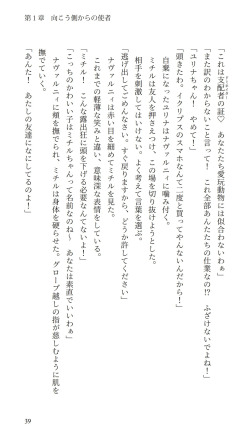 第1章　向こう側からの使者
「これは支配者の証♡　あなたたち愛玩動物には似合わないわぁ」
「また訳のわからないこと言って！　これ全部あんたたちの仕業なの!?　ふざけないでよね！」
「ユリナちゃん！　やめて！」
「頭きたわ。イクリプスのスマホなんて二度と買ってやんないんだから！」
自棄になったユリナはナヴァルニィに嚙み付く。
ミチルは友人を押さえつけ、この場を切り抜けようとした。
相手を刺激してはいけない。よく考えて言葉を選ぶ。
「逃げ出してごめんなさい。すぐ戻りますから、どうか許してください」
ナヴァルニィは赤い目を細めてミチルを見た。
これまでの軽薄な笑みと違い、意味深な表情をしている。
「ミチル！　こんな露出狂に頭を下げる必要なんてないよ！」
「こっちのかわいい子はミチルちゃんって名前なのね～　あなたは素直でいいわぁ」
ナヴァルニィに頰を撫でられ、ミチルは身体を硬らせた。グローブ越しの指が慈しむように肌を
撫でていく。
「あんた！　あたしの友達になにしてるのよ！」
39